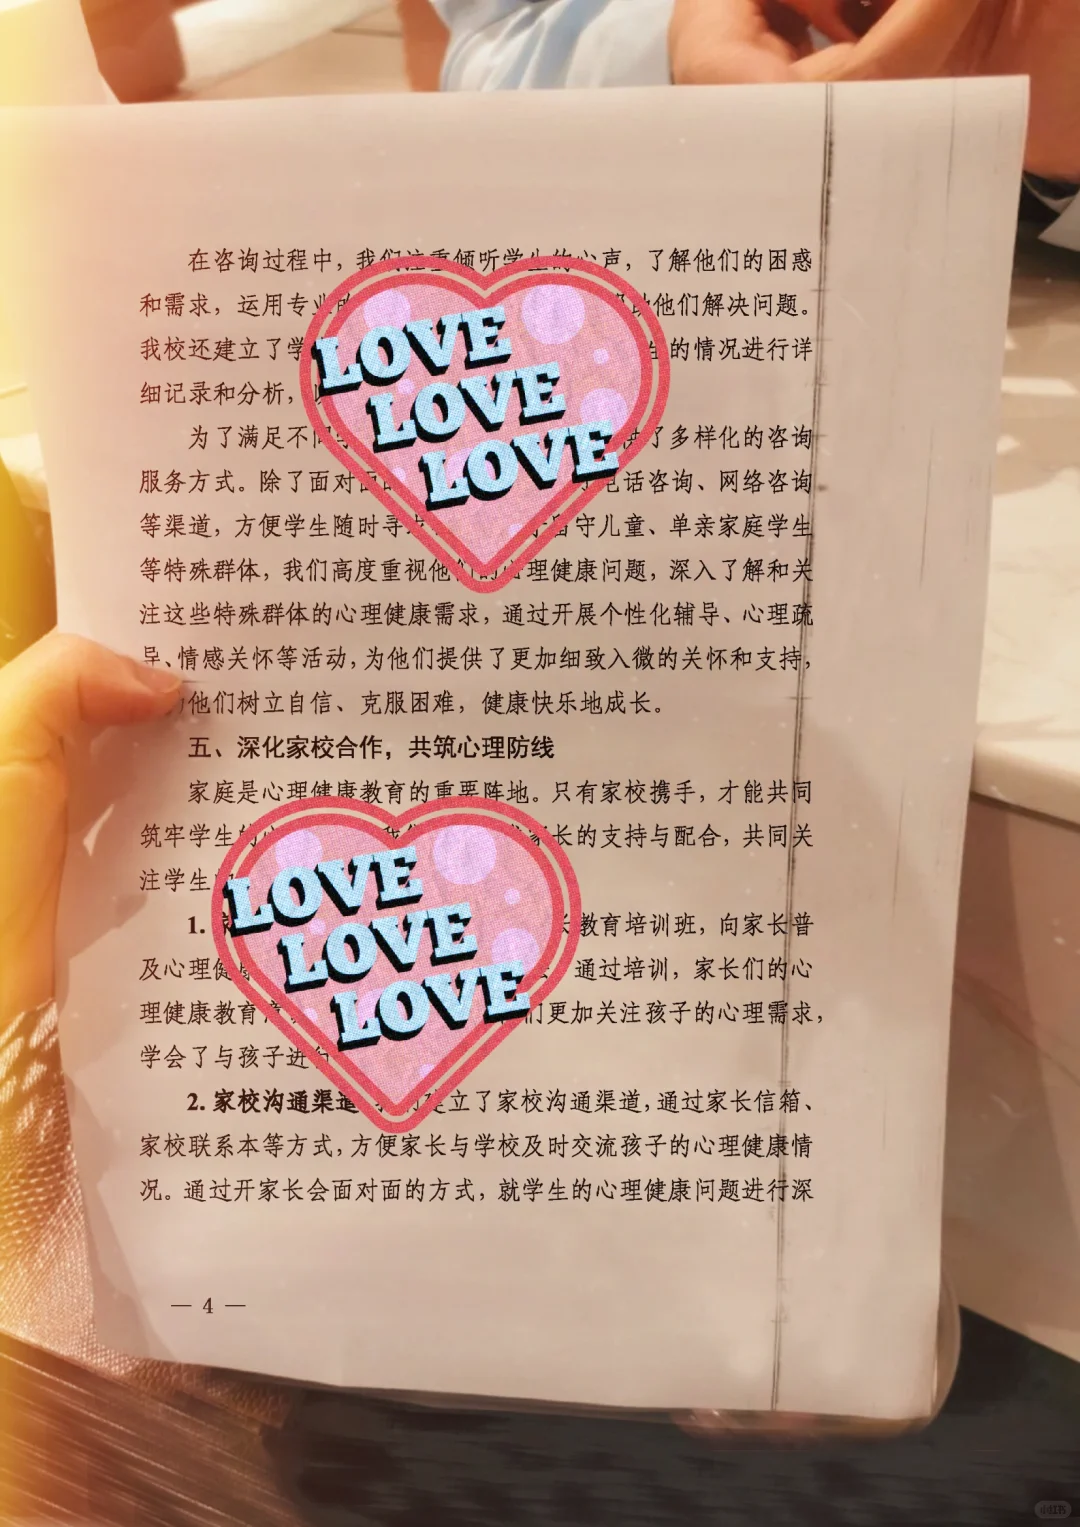 在咨询过程中，我们注重倾听学生的心声，了解他们的困惑
和需求，运用专业 他们解决问题。
我校还建立了学 的情况进行详
细记录和分析，
为了满足不同 了多样化的咨询
服务方式。除了面对面 电话咨询、网络咨询
等渠道，方便学生随时寻求 留守儿童、单亲家庭学生
等特殊群体，我们高度重视他们的心理健康问题，深入了解和关
注这些特殊群体的心理健康需求，通过开展个性化辅导、心理疏
导、情感关怀等活动，为他们提供了更加细致入微的关怀和支持，
他们树立自信、克服困难，健康快乐地成长。
五、深化家校合作，共筑心理防线
家庭是心理健康教育的重要阵地。只有家校携手，才能共同
筑牢学生的 家长的支持与配合，共同关
注学生
1. 教育培训班，向家长普
及心理健 通过培训，家长们的心
理健康教育 们更加关注孩子的心理需求，
学会了与孩子进行
2. 家校沟通渠道 建立了家校沟通渠道，通过家长信箱、
家校联系本等方式，方便家长与学校及时交流孩子的心理健康情
况。通过开家长会面对面的方式，就学生的心理健康问题进行深
— 4 —
LOVE
LOVE
LOVE
LOVE
LOVE
LOVE
小红书